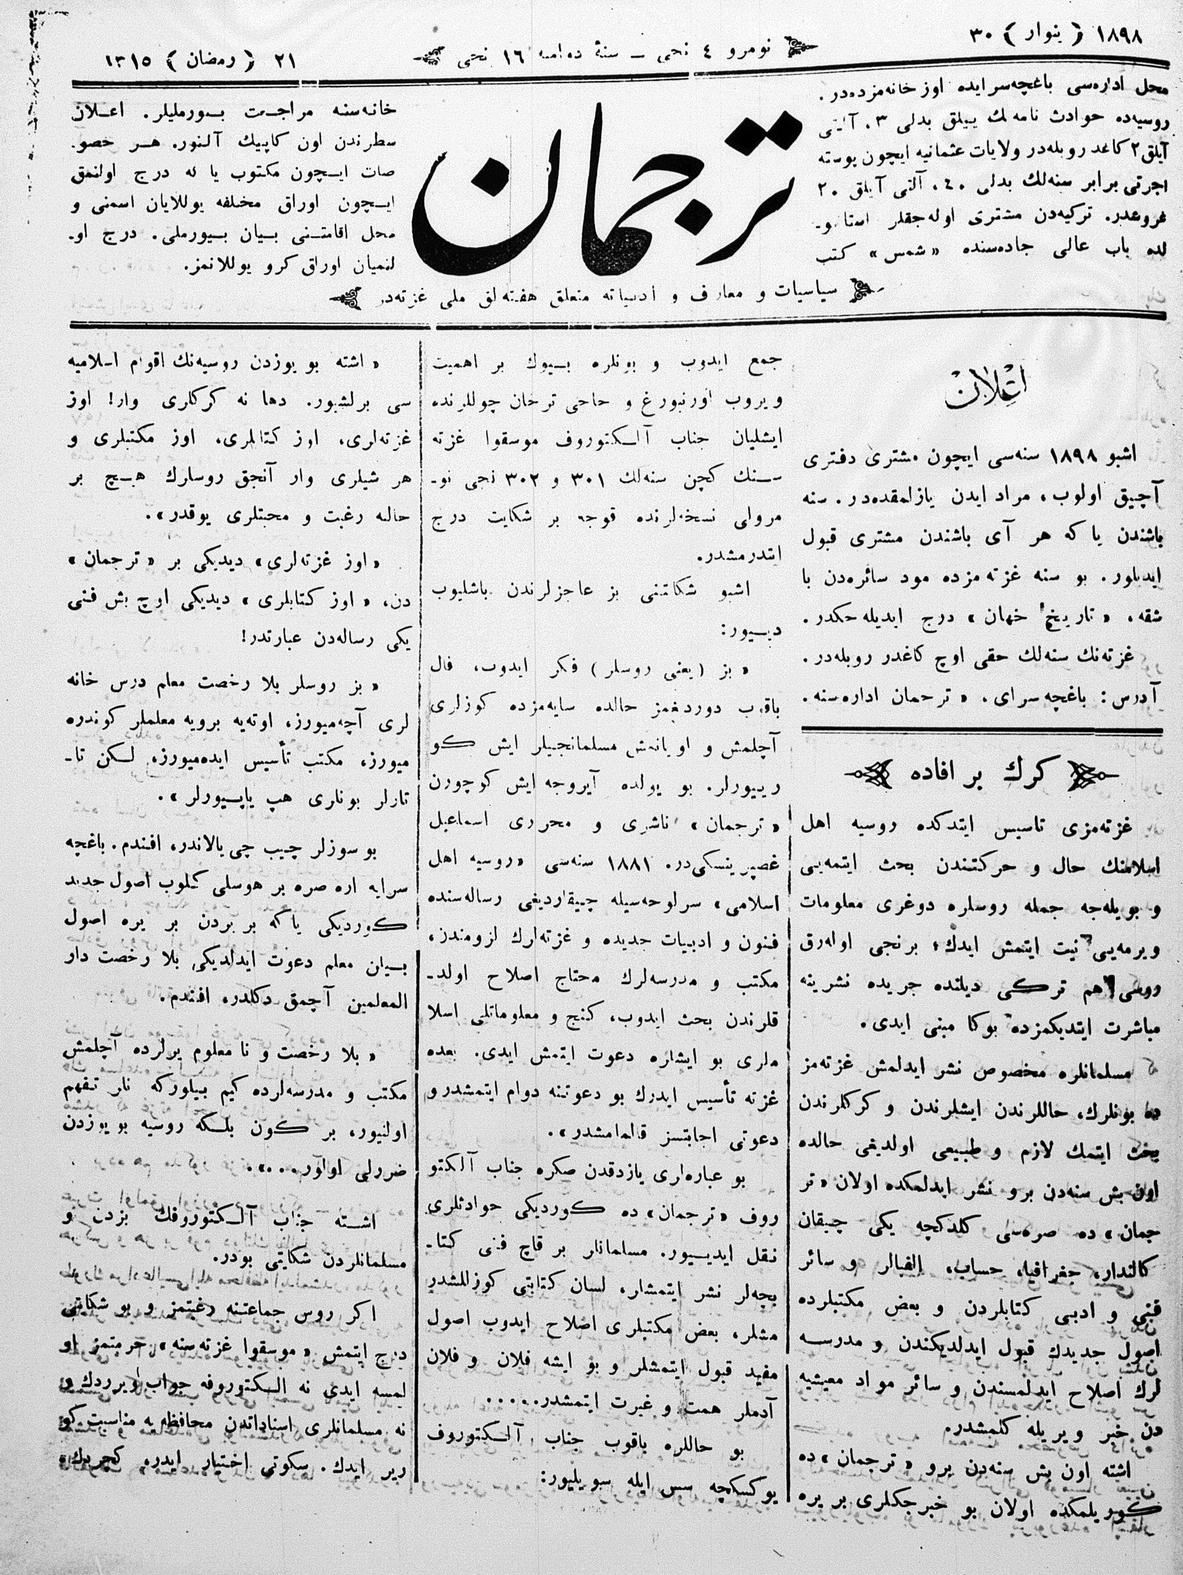 ١٨٩٨ ﴿ ینوار ﴾ ٣٠
نومرو ٤ نجی ـ سنۀ دوامیه ١٦ نجی
٢١ ﴿ رمضان ﴾ ١٣١٥
محل اداره‌سی باغچه‌سرایده اوز خانه‌مزده‌در.
روسیه‌ده حوادث نامه‌لك ییللق بدلی ٣، آلتی
آیلق ٢ کاغد روبله‌در ولایات عثمانیه ایچون پوسته
اجرتی برابر سنه‌لك بدلی ٤٠، آلتی آیلق ٢٠
غروشدر. ترکیه‌دن مشتری اوله‌جقلر استانبو‌ـ
لده باب عالی جاده‌سنده «شمس» کتب
خانه‌سنه مراجعت بیورملیلر. اعلان
سطرندن اون کاپیك آلنور. هر خصو‌ـ
صات ایچون مکتوب یا له درج اولنمق
ایچون اوراق مخلفه یوللایان اسمنی و
محل اقامتنی بیان بیورملی. درج او‌ـ
لنمیان اوراق کرو یوللانمز.
ترجمان
سیاسیات و معارف و ادبیاته متعلق هفته‌لق ملی غزته‌در
اعلان
اشبو ١٨٩٨ سنه‌سی ایچون مشتری دفتری
آچیق اولوب، مراد ایدن یازلمقده‌در. سنه
باشندن یا که هر آی باشندن مشتری قبول
ایدیلور. بو سنه غزته‌مزده مود سائره‌دن با
شقه، «تاریخ جهان» درج ایدیله‌جکدر.
غزته‌نك سنه‌لك حقی اوچ کاغدر روبله‌در.
آدرس: باغچه‌سرای، «ترجمان اداره‌سنه.
کرك بر افاده
غزته‌مزی تاسیس ایتدکده روسیه اهل
اسلامنك حال و حرکتندن بحث ایتمه‌یی
و بویله‌جه جمله روسلره دوغری معلومات
ویرمه‌یی نیت ایتمش ایدك؛ برنجی اوله‌رق
روسی هم ترکی دیلنده جریده نشرینه
مباشرت ایتدیکمزده بوکا مبنی ایدی.
مسلمانلره مخصوص نشر ایدلمش غزته‌مز
ده بونلرك، حاللرندن ایشلرندن و کرکلرندن
بحث ایتمك لازم و طبیعی اولدیغی حالده
اون بش سنه‌دن برو نشر ایدلمکده اولان «تر
جمان» ده صره‌سی کلدکچه یکی چیقان
کالندار، جغرافیا، حساب، الفبالر و سائر
فنی و ادبی کتابلردن و بعض مکتبلرده
اصول جدیدك قبول ایدلدیکندن و مدرسه
لرك اصلاح ایدلمسندن و سائر مواد معیشیه
دن خبر ویریله کلمشدر.
اشته اون بش سنه‌دن برو «ترجمان» ده
کوریلمکده اولان بو خبرجکلری بر یره
جمع ایدوب و بونلره بیوك بر اهمیت
ویروب اورنبورغ و حاجی ترخان چوللرنده
ایشلیان جناب آلکتوروف موسقوا غزته
سنك کچن سنه‌لك ٣٠١ و ٣٠٢ نجی نو‌ـ
مرولی نسخه‌لرنده قوجه بر شکایت درج
ایتدرمشدر.
اشبو شکایتنی بز عاجزلرندن باشلیوب
دییور:
«بز (یعنی روسلر) فکر ایدوب، فال
باقوب دوردیغمز حالده سایه‌مزده کوزلری
آچلمش و اویانمش مسلمانجیلر ایش کو
رییورلر. بو یولده آیروجه ایش کوچورن
«ترجمان» ناشری و محرری اسماعیل
غصپرینسکی‌در. ١٨٨١ سنه‌سی «روسیه اهل
اسلامی» سرلوحه‌سیله چیقاردیغی رساله‌سنده
فنون و ادبیات جدیده و غزته‌لرك لزومندن،
مکتب و مدرسه‌لرك محتاج اصلاح اولد‌ـ
قلرندن بحث ایدوب، کنج و معلوماتلی اسلا
ملری بو ایشلره دعوت ایتمش ایدی. بعده
غزته تأسیس ایدرك بو دعوتنه دوام ایتمشدر و
دعوتی اجابتسز قالمامشدر».
بو عباره‌لری یازدقدن صکره جناب آلکتو
روف «ترجمان» ده کوردیکی حوادثلری
نقل ایدییور. مسلمانلر بر قاچ فنی کتا‌ـ
بچه‌لر نشر ایتمشلر، لسان کتابتی کوزللشدر
مشلر، بعض مکتبلری اصلاح ایدوب اصول
مفید قبول ایتمشلر و بو ایشه فلان و فلان
آدملر همت و غیرت ایتمشدر.....
بو حاللره باقوب جناب آلکتوروف
یوکسکچه سس ایله سویلیور:
«اشته بو یوزدن روسیه‌نك اقوام اسلامیه
سی برلشیور. دها نه کرکلری وار! اوز
غزته‌لری، اوز کتابلری، اوز مکتبلری و
هر شیلری وار آنجق روسلرك هیچ بر
حالنه رغبت و محبتلری یوقدر».
«اوز غزته‌لری» دیدیکی بر «ترجمان»
دن، «اوز کتابلری» دیدیکی اوچ بش فنی
یکی رساله‌دن عبارتدر!
«بز روسلر بلا رخصت معلم درس خانه
لری آچه‌میورز، اوته‌یه برویه معلملر کوندره
میورز، مکتب تأسیس ایده‌میورز، لکن تا‌ـ
تارلر بونلری هپ یاپییورلر».
بو سوزلر چیب چی یالاندر، افندم. باغچه
سرایه اره صره بر هوسلی کلوب اصول جدید
کوردیکی یا که بر یردن بر یره اصول
بیان معلم دعوت ایدلدیکی بلا رخصت دار
المعلمین آچمق دکلدر، افندم.
«بلا رخصت و نا معلوم یرلرده آچلمش
مکتب و مدرسه‌لرده کیم بیلورکه نلر تفهم
اولنیور، بر کون بلکه روسیه بو یوزدن
ضررلی اولور....».
اشته جناب آلکتوروفك بزدن و
مسلمانلردن شکایتی بودر.
اکر روس جماعتنه رغبتمز و بو شکایتی
درج ایتمش «موسقوا غزته‌سنه» حرمتمز او
لمسه ایدی نه الکتوروفه جواب ویرردك و
نه مسلمانلری اسناداتدن محافظه‌یه مناسبت کو
ریر ایدك. سکوتی اختیار ایدر، کچردك.